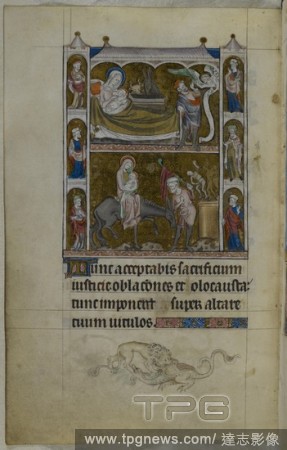 Tunc acceptabis sacrificium
iusticie oblationes et olocausta:
tunc imponent super altare
tuum uitulos.
TPG
www.tpgnews.com/ 達志影像